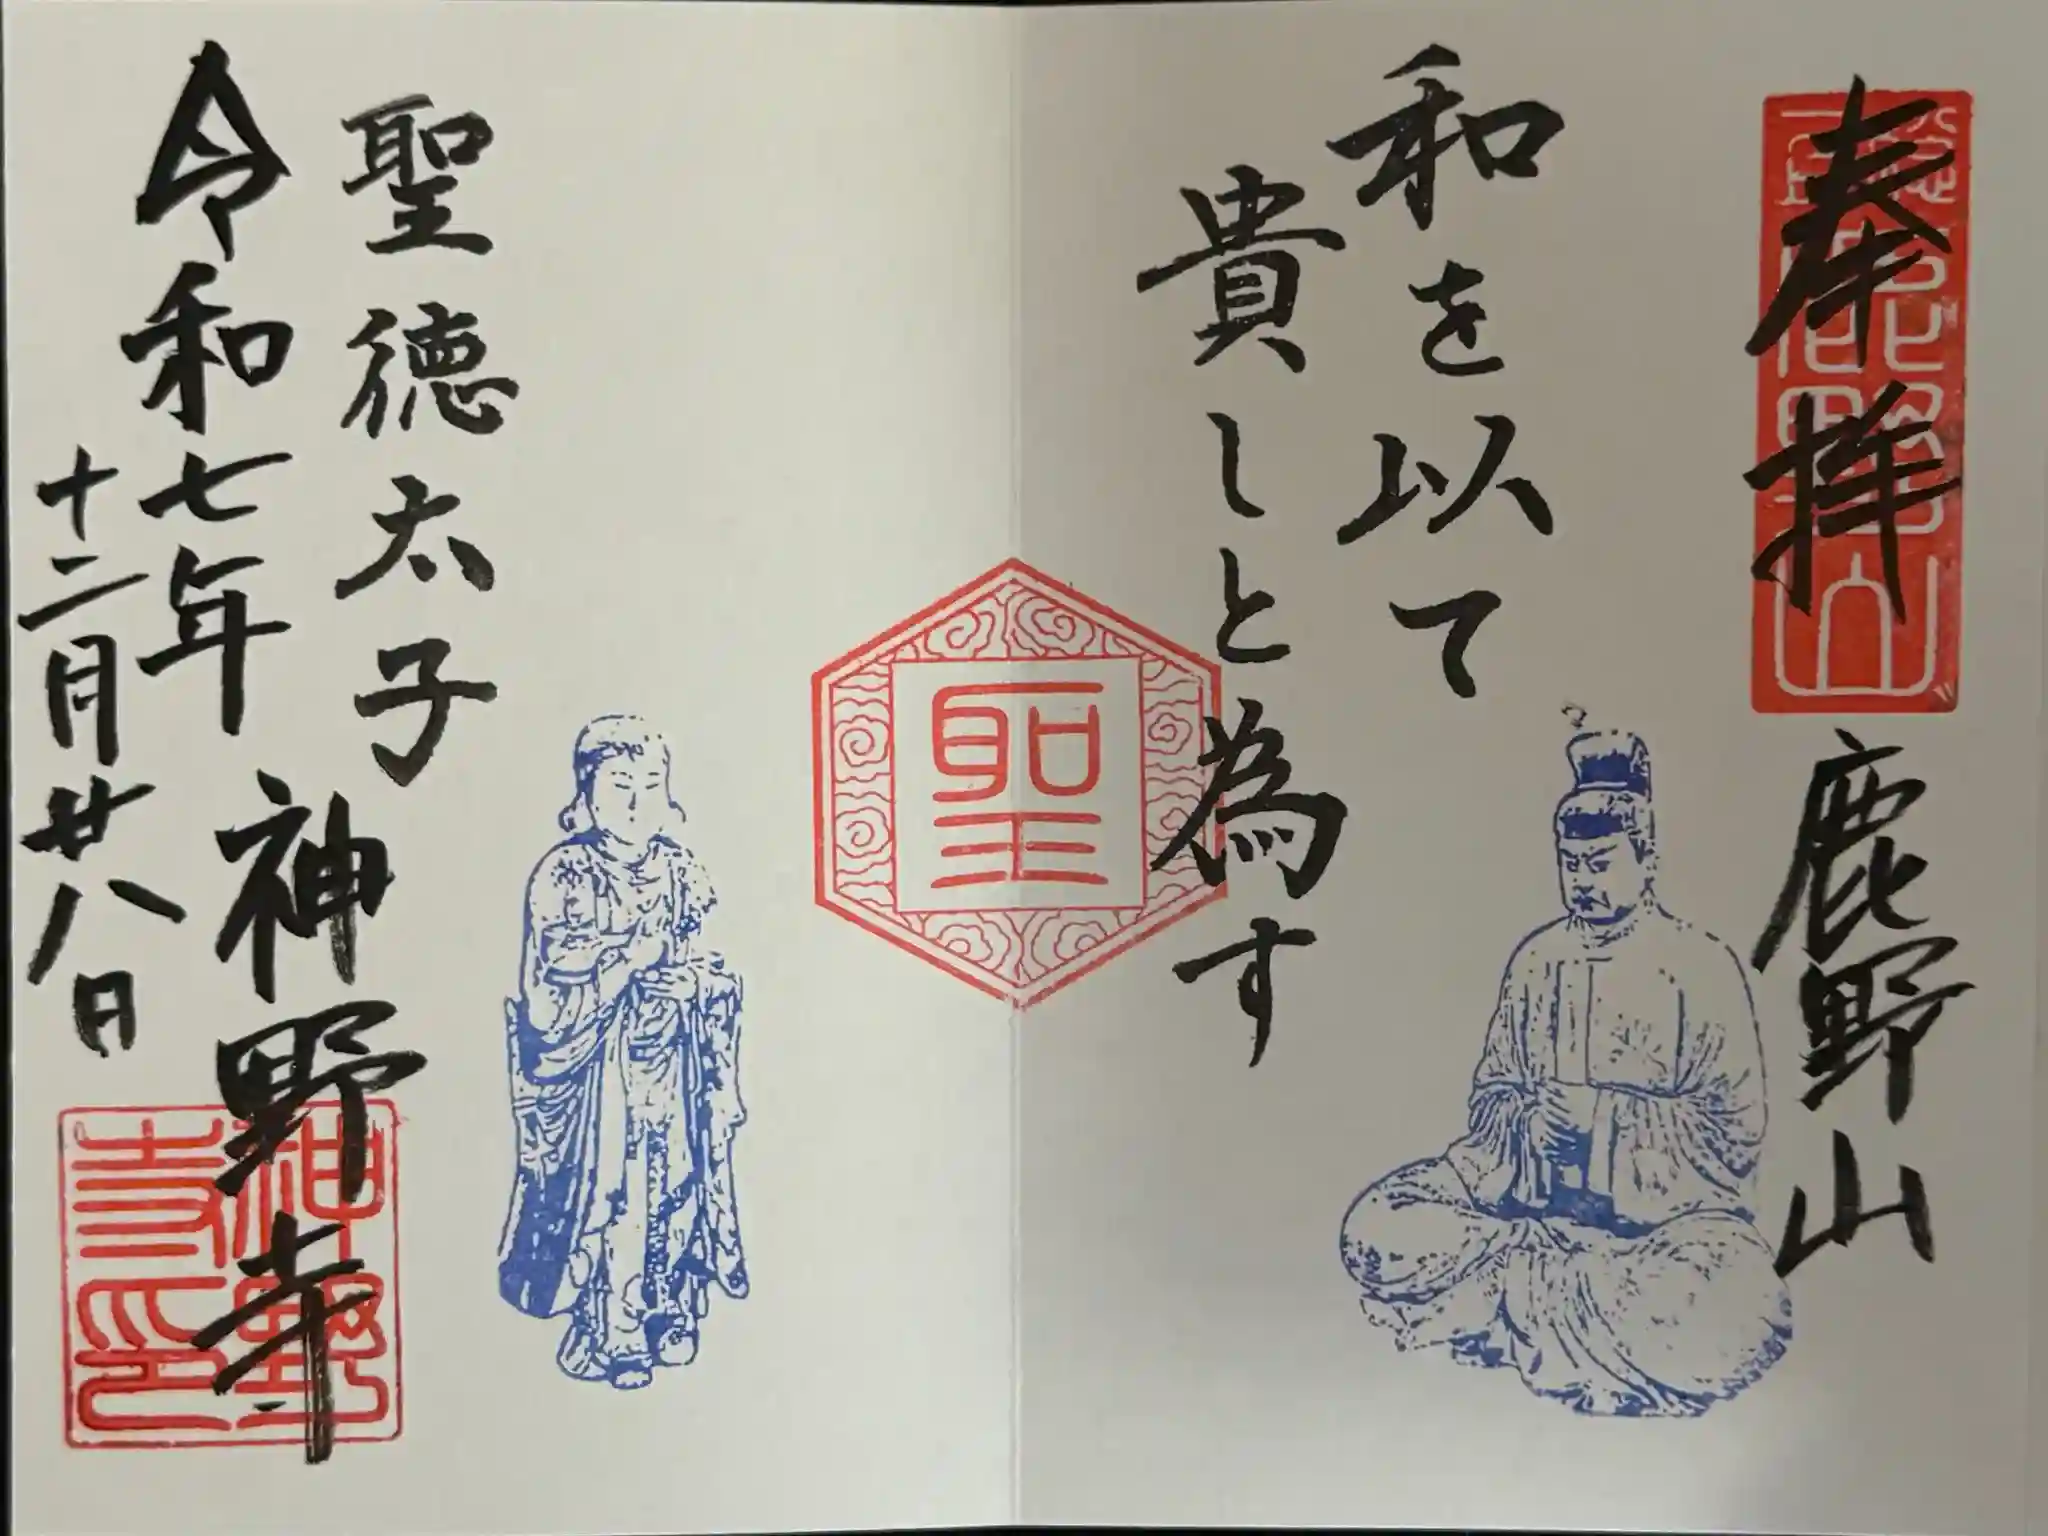 奉拝
鹿野山
和を以て
貴しと為す
聖
聖徳太子
令和七年
神野寺
十二月廿八日
神野寺印